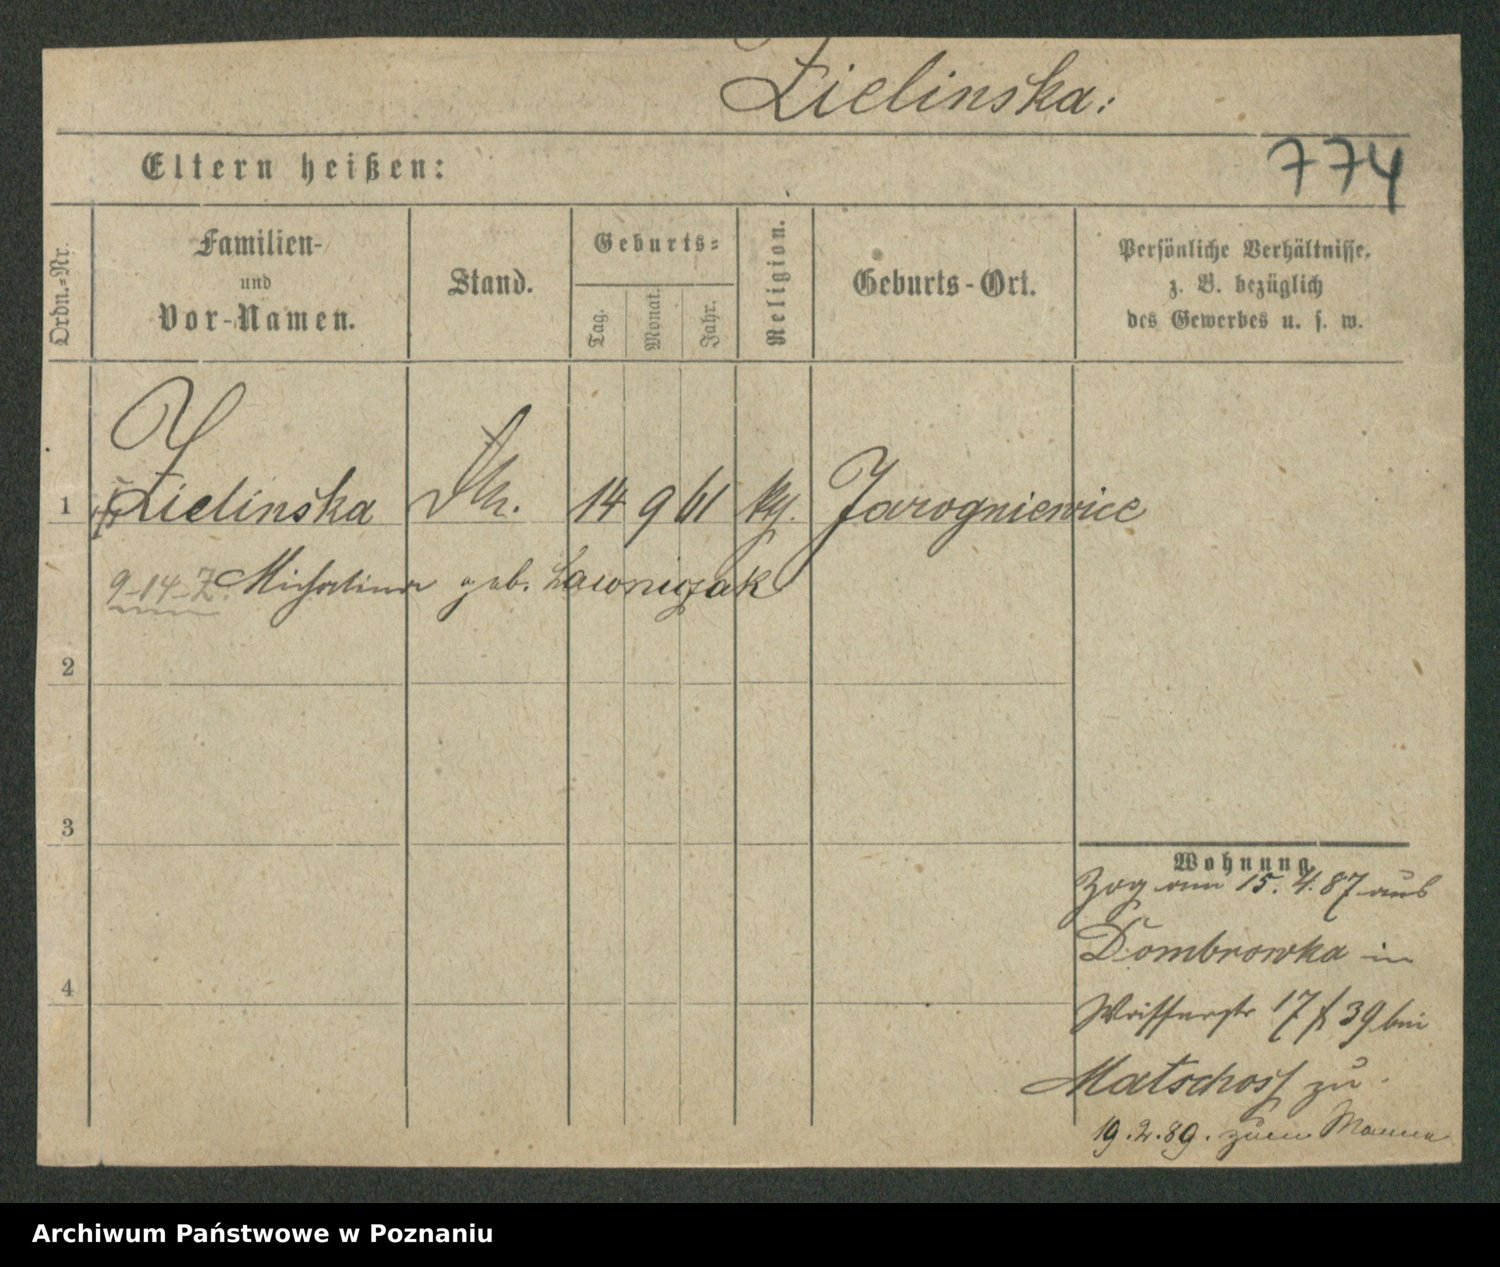 Zielinska:
Eltern heißen:
774
Ordn.-Nr.
Familien-
und
Vor-Namen.
Stand.
Geburts-
Tag.
Monat.
Jahr.
Religion.
Geburts-Ort.
Persönliche Verhältnisse,
z. B. bezüglich
des Gewerbes u. s. w.
1
Zielinska
14 9 61
Jarogniewice
9-14-Z. Michalina geb. Lawniczak
2
3
4
Wohnung.
Zog am 15. 4. 87 aus
Dombrowka in
17 39 bei
Matschoss zu
19. 2. 89. zum Manne
Archiwum Państwowe w Poznaniu